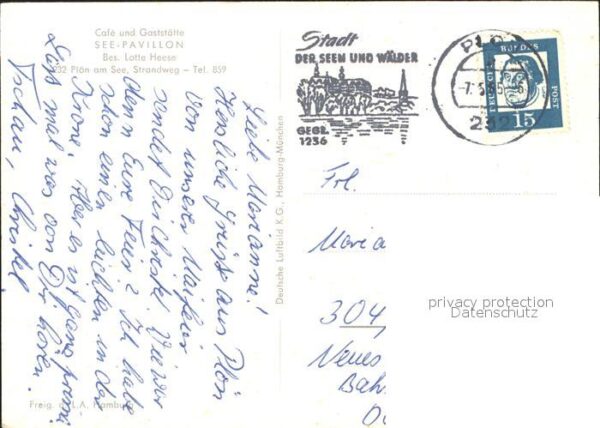 Café und Gaststätte
SEE-PAVILLON
Bes. Lotte Heese
232 Plön am See, Strandweg – Tel. 859
Liebe Marianne!
Herzliche Grüße aus Plön
von unserer Maifeier
sendet Dir Christel. Wie war
denn Eure Feier? Ich habe
schon einen leichten in der
Krone. Aber es ist ganz prima
Laß mal was von Dir hören.
Tschau, Christel
Freig. d. L.A. Hamburg
Deutsche Luftbild K.G., Hamburg-München
Stadt
DER SEEN UND WÄLDER
GEGR.
1236
PLÖ
232
DEUTSCHE BUNDESPOST
15
Frl.
Maria
304
Neues
Bah
privacy protection
Datenschutz